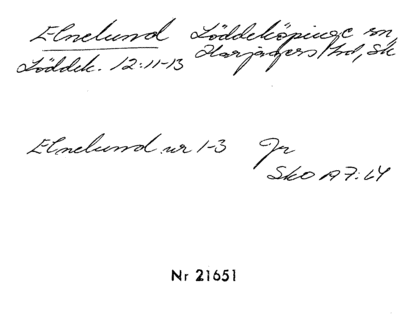 Elnelund Löddeköpinge sn,
Löddek. 12:11-13 Harjagers hd, Sk
Elnelund nr 1-3 Jr
Sko A7:64
Nr 21651